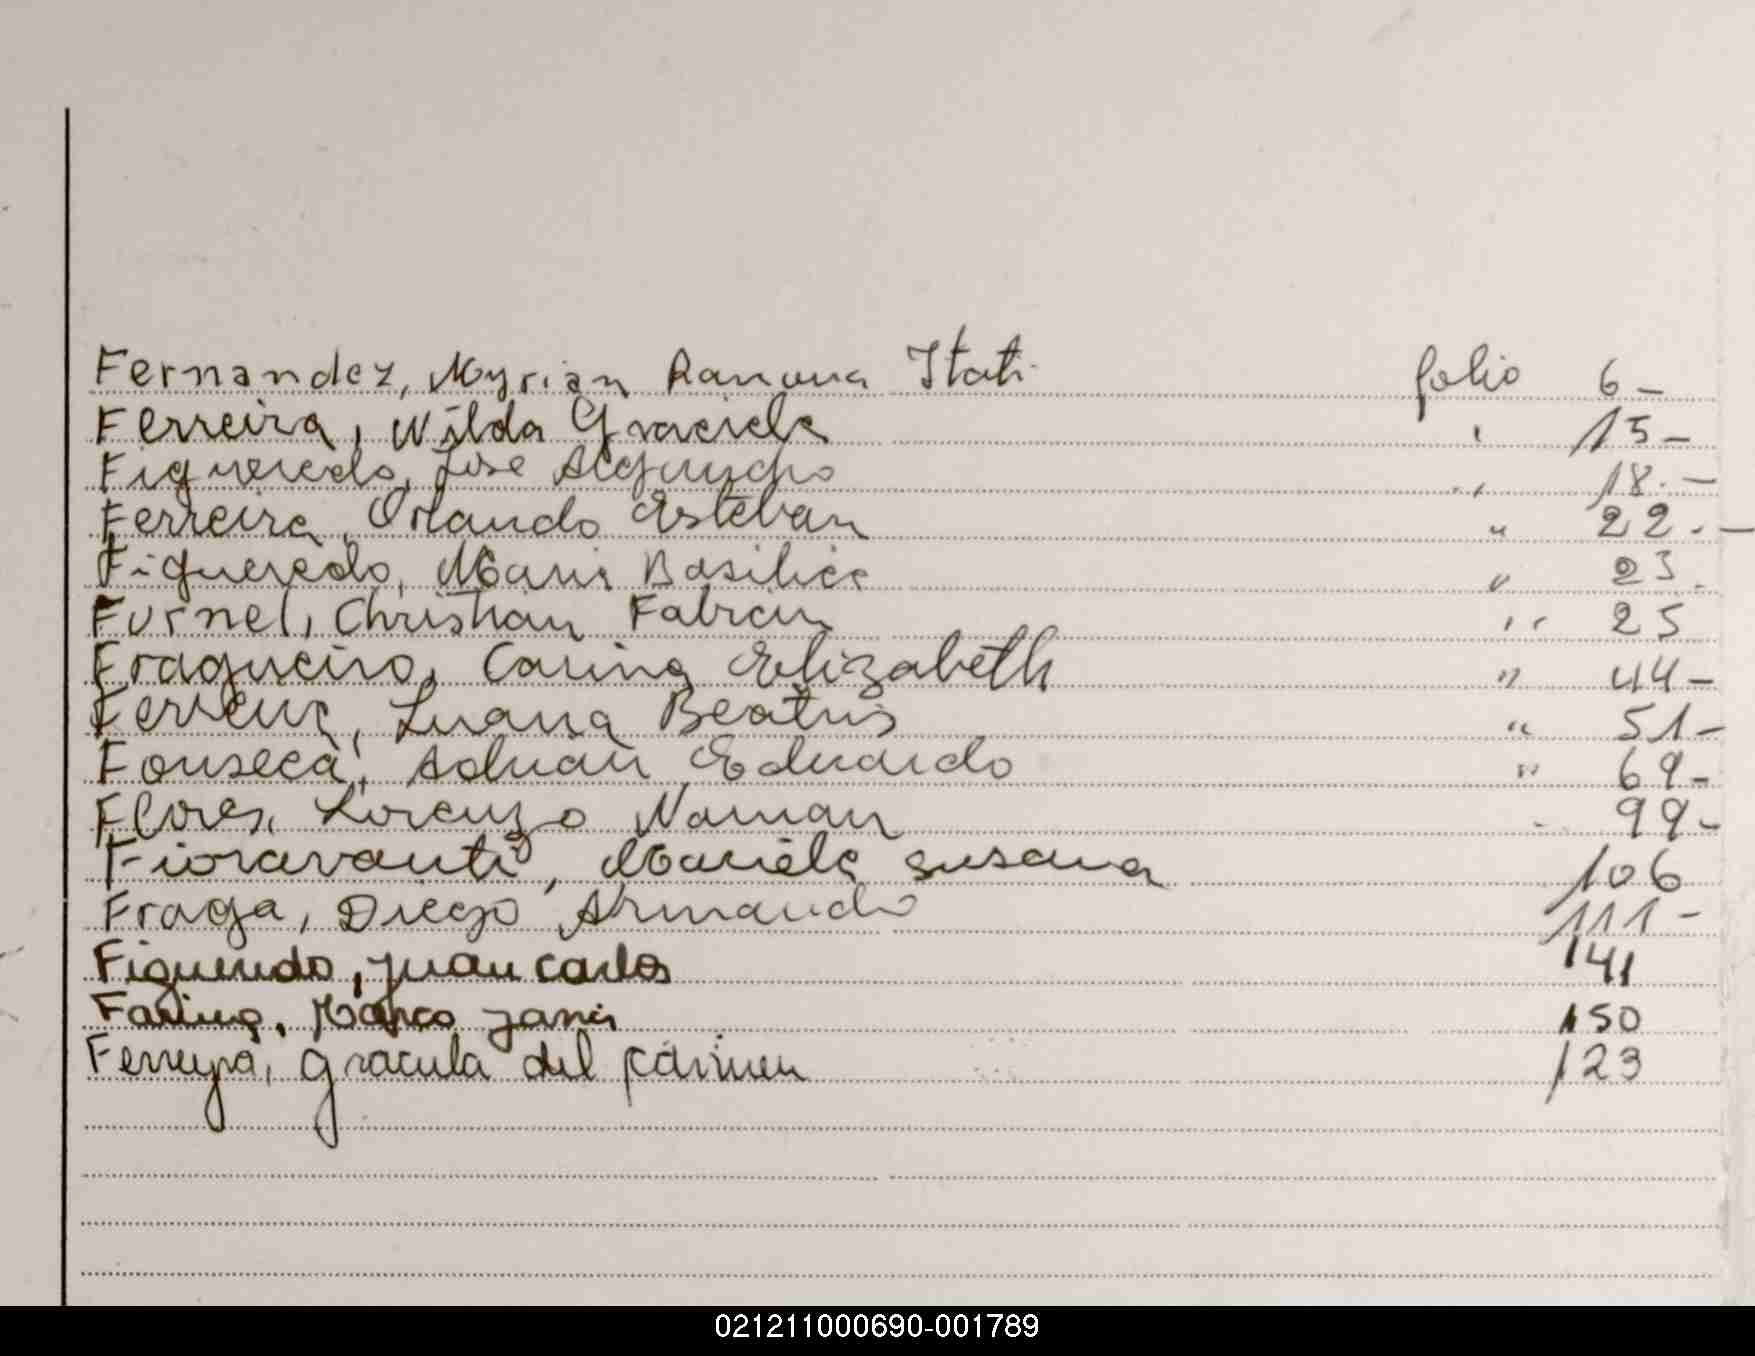 Fernandez, Myrian Ramona Itati folio 6-
Ferreira, Wilda Graciela " 15-
Figueredo, Jose Alejandro " 18.-
Ferreira, Orlando Esteban " 22.-
Figueredo, Maria Basilica " 23.
Furnel, Christian Fabian " 25
Fragueiro, Carina Elizabeth " 44-
Ferreira, Luana Beatris " 51-
Fonseca, Adrian Eduardo " 69-
Flores, Lorenzo Naman 99-
Fioravanti, Mariela Susana 106
Fraga, Diego Armando 111-
Figueredo, Juan Carlos 141
Farina, Marco 150
Ferreyra, Graciela del Carmen 123
021211000690-001789